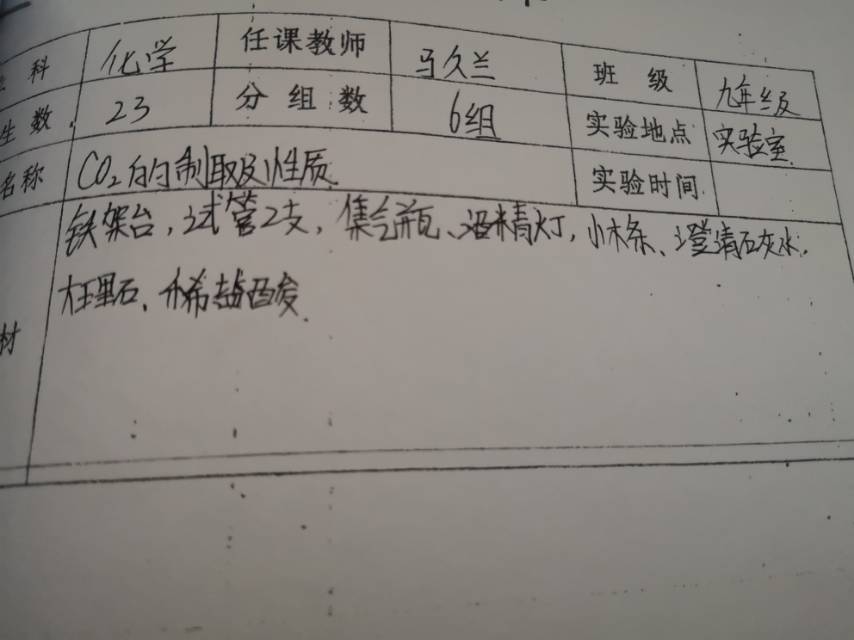 科 化学 任课教师 马久兰 班级 九年级
生数 23 分组数 6组 实验地点 实验室
名称 CO₂的制取及性质 实验时间
铁架台，试管2支，集气瓶、酒精灯，小木条、澄清石灰水，
材 大理石、稀盐酸